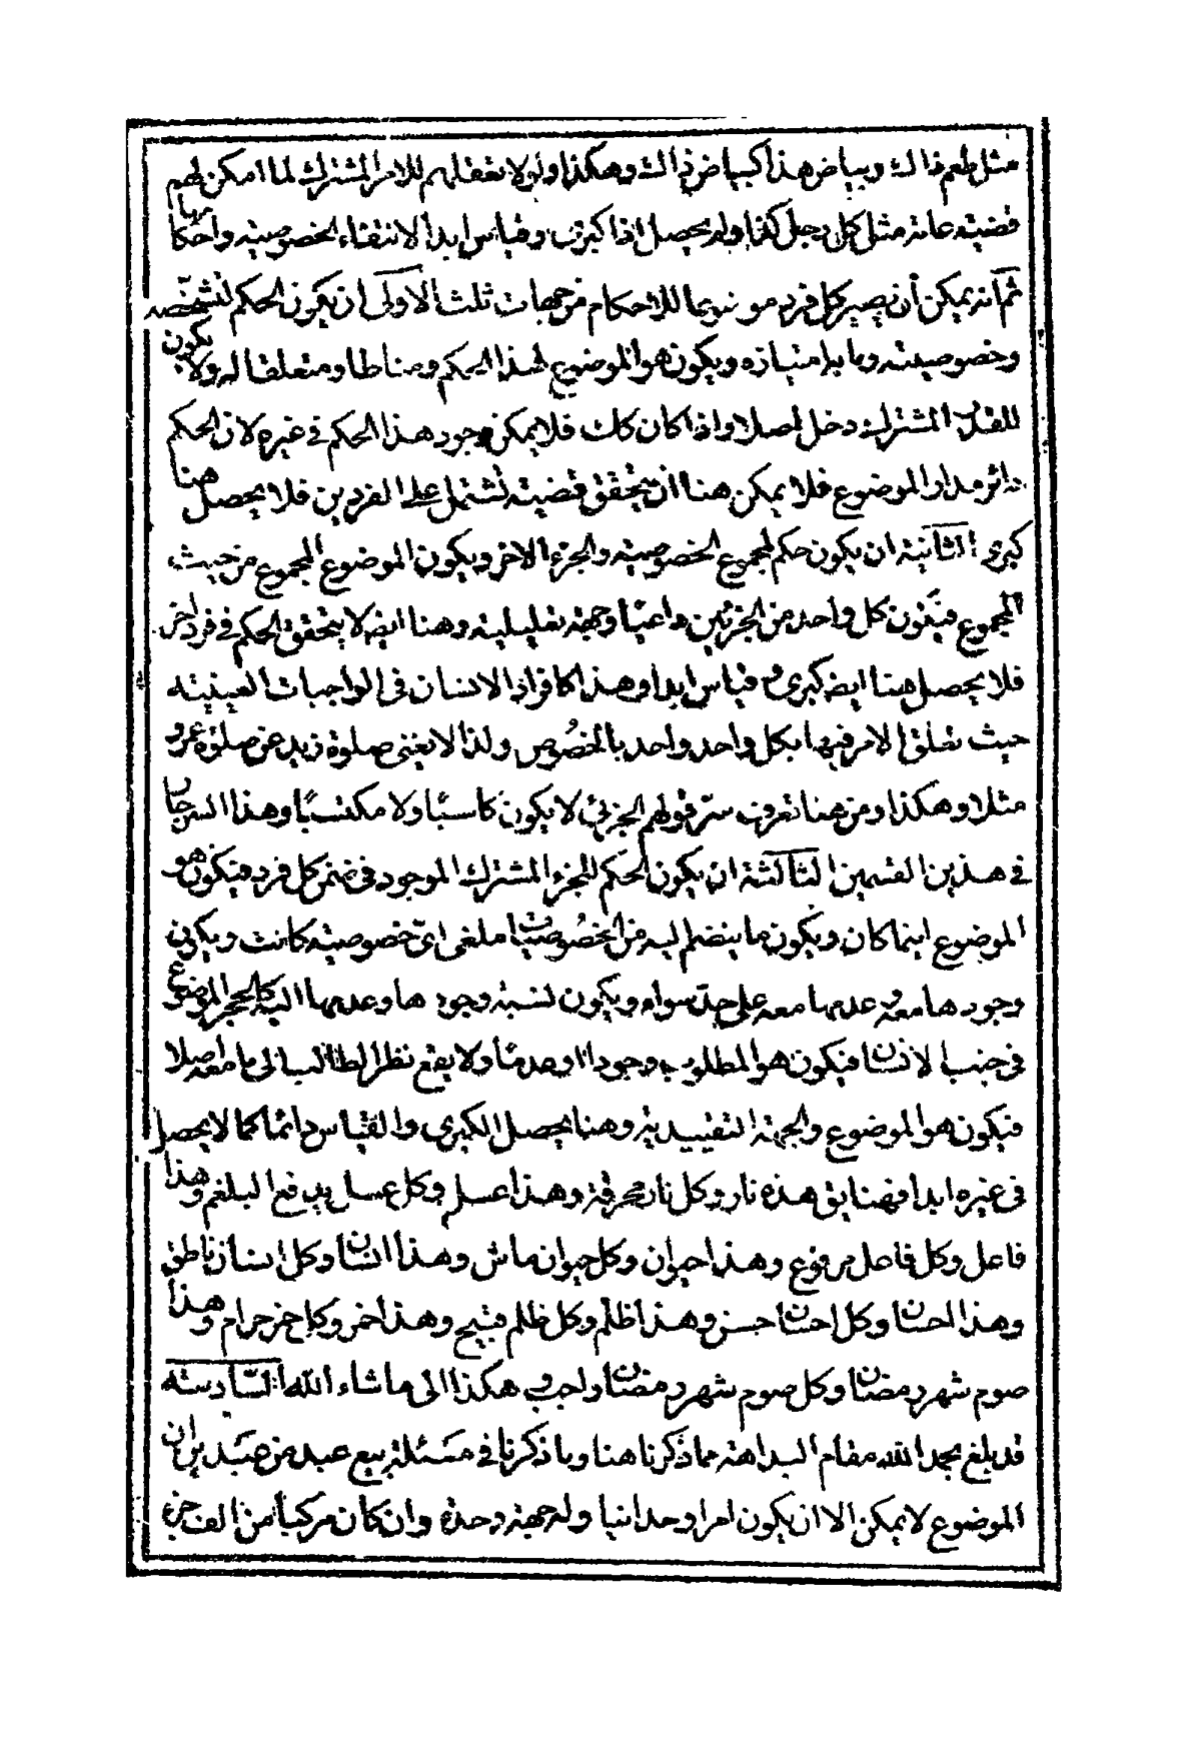 مثل طعم ذالك وبياض هذا كبياض ذالك وهكذا ولولا تعقلهم للامر المشترك لما امكن لهم
قضيته عامة مثل كل رجل كذا ولم يحصل اذا كبرى وقياس ابدا لانتفاء الخصوصيته واحكامها
ثم انه يمكن أن يصير كل فرد موضوعا للاحكام من جهات ثلث الأولى ان يكون الحكم لتشخصه
وخصوصيته وما به امتيازه ويكون هو الموضوع لهذا الحكم ومناطا ومتعلقا له ولا يكون
للقدر المشترك دخل اصلا واذا كان كك فلا يمكن وجود هذا الحكم في غيره لان الحكم
دائر مدار الموضوع فلا يمكن هنا ان يتحقق قضيته تشتمل على الفردين فلا يحصل هنا
كبرى الثانية ان يكون حكم لمجموع الخصوصيته والجزء الاخر ويكون الموضوع المجموع من حيث
المجموع فيكون كل واحد من الجزئين داعيا وجهة تعليليته وهنا ايضا لا يتحقق الحكم في فرد اخر
فلا يحصل هنا ايضا كبرى و قياس ابدا وهذا كافراد الانسان في الواجبات العينيته
حيث تعلق الامر فيها بكل واحد واحد بالخصوص ولذا لا يغنى صلوة زيد عن صلوة عمرو
مثلا وهكذا ومن هنا تعرف سر قولهم الجزئي لا يكون كاسبا ولا مكتسبا وهذا السر جار
في هذين القسمين الثالثة ان يكون الحكم للجزء المشترك الموجود في ضمن كل فرد فيكون هو
الموضوع اينما كان ويكون ما ينضم اليه من الخصوصيات ملغى اى خصوصيته كانت ويكون
وجودها معه و عدمها معه على حد سواء ويكون نسبة وجودها وعدمها اليه كالحجر الموضوع
في جنب الانسان فيكون هو المطلوب وجودا او عدما ولا يقع نظر الطالب الى ما معه اصلا
فيكون هو الموضوع والجهة التقييدية وهنا يحصل الكبرى والقياس دائما كما لا يحصل
في غيره ابدا فهنا يق هذه نار وكل نار محرقة وهذا عسل وكل عسل يدفع البلغم وهذا
فاعل وكل فاعل مرفوع وهذا حيوان وكل حيوان ماش وهذا انسان وكل انسان ناطق
وهذا احسان وكل احسان حسن وهذا ظلم وكل ظلم قبيح وهذا خمر وكل خمر حرام وهذا
صوم شهر رمضان وكل صوم شهر رمضان واجب و هكذا الى ما شاء الله السادسته
قد بلغ بحمد الله مقام البداهة مما ذكرنا هنا وما ذكرنا في مسئلة بيع عبد من عبدين ان
الموضوع لا يمكن الا ان يكون امرا وحدانيا وله جهة وحدة وان كان مركبا من الف جزء